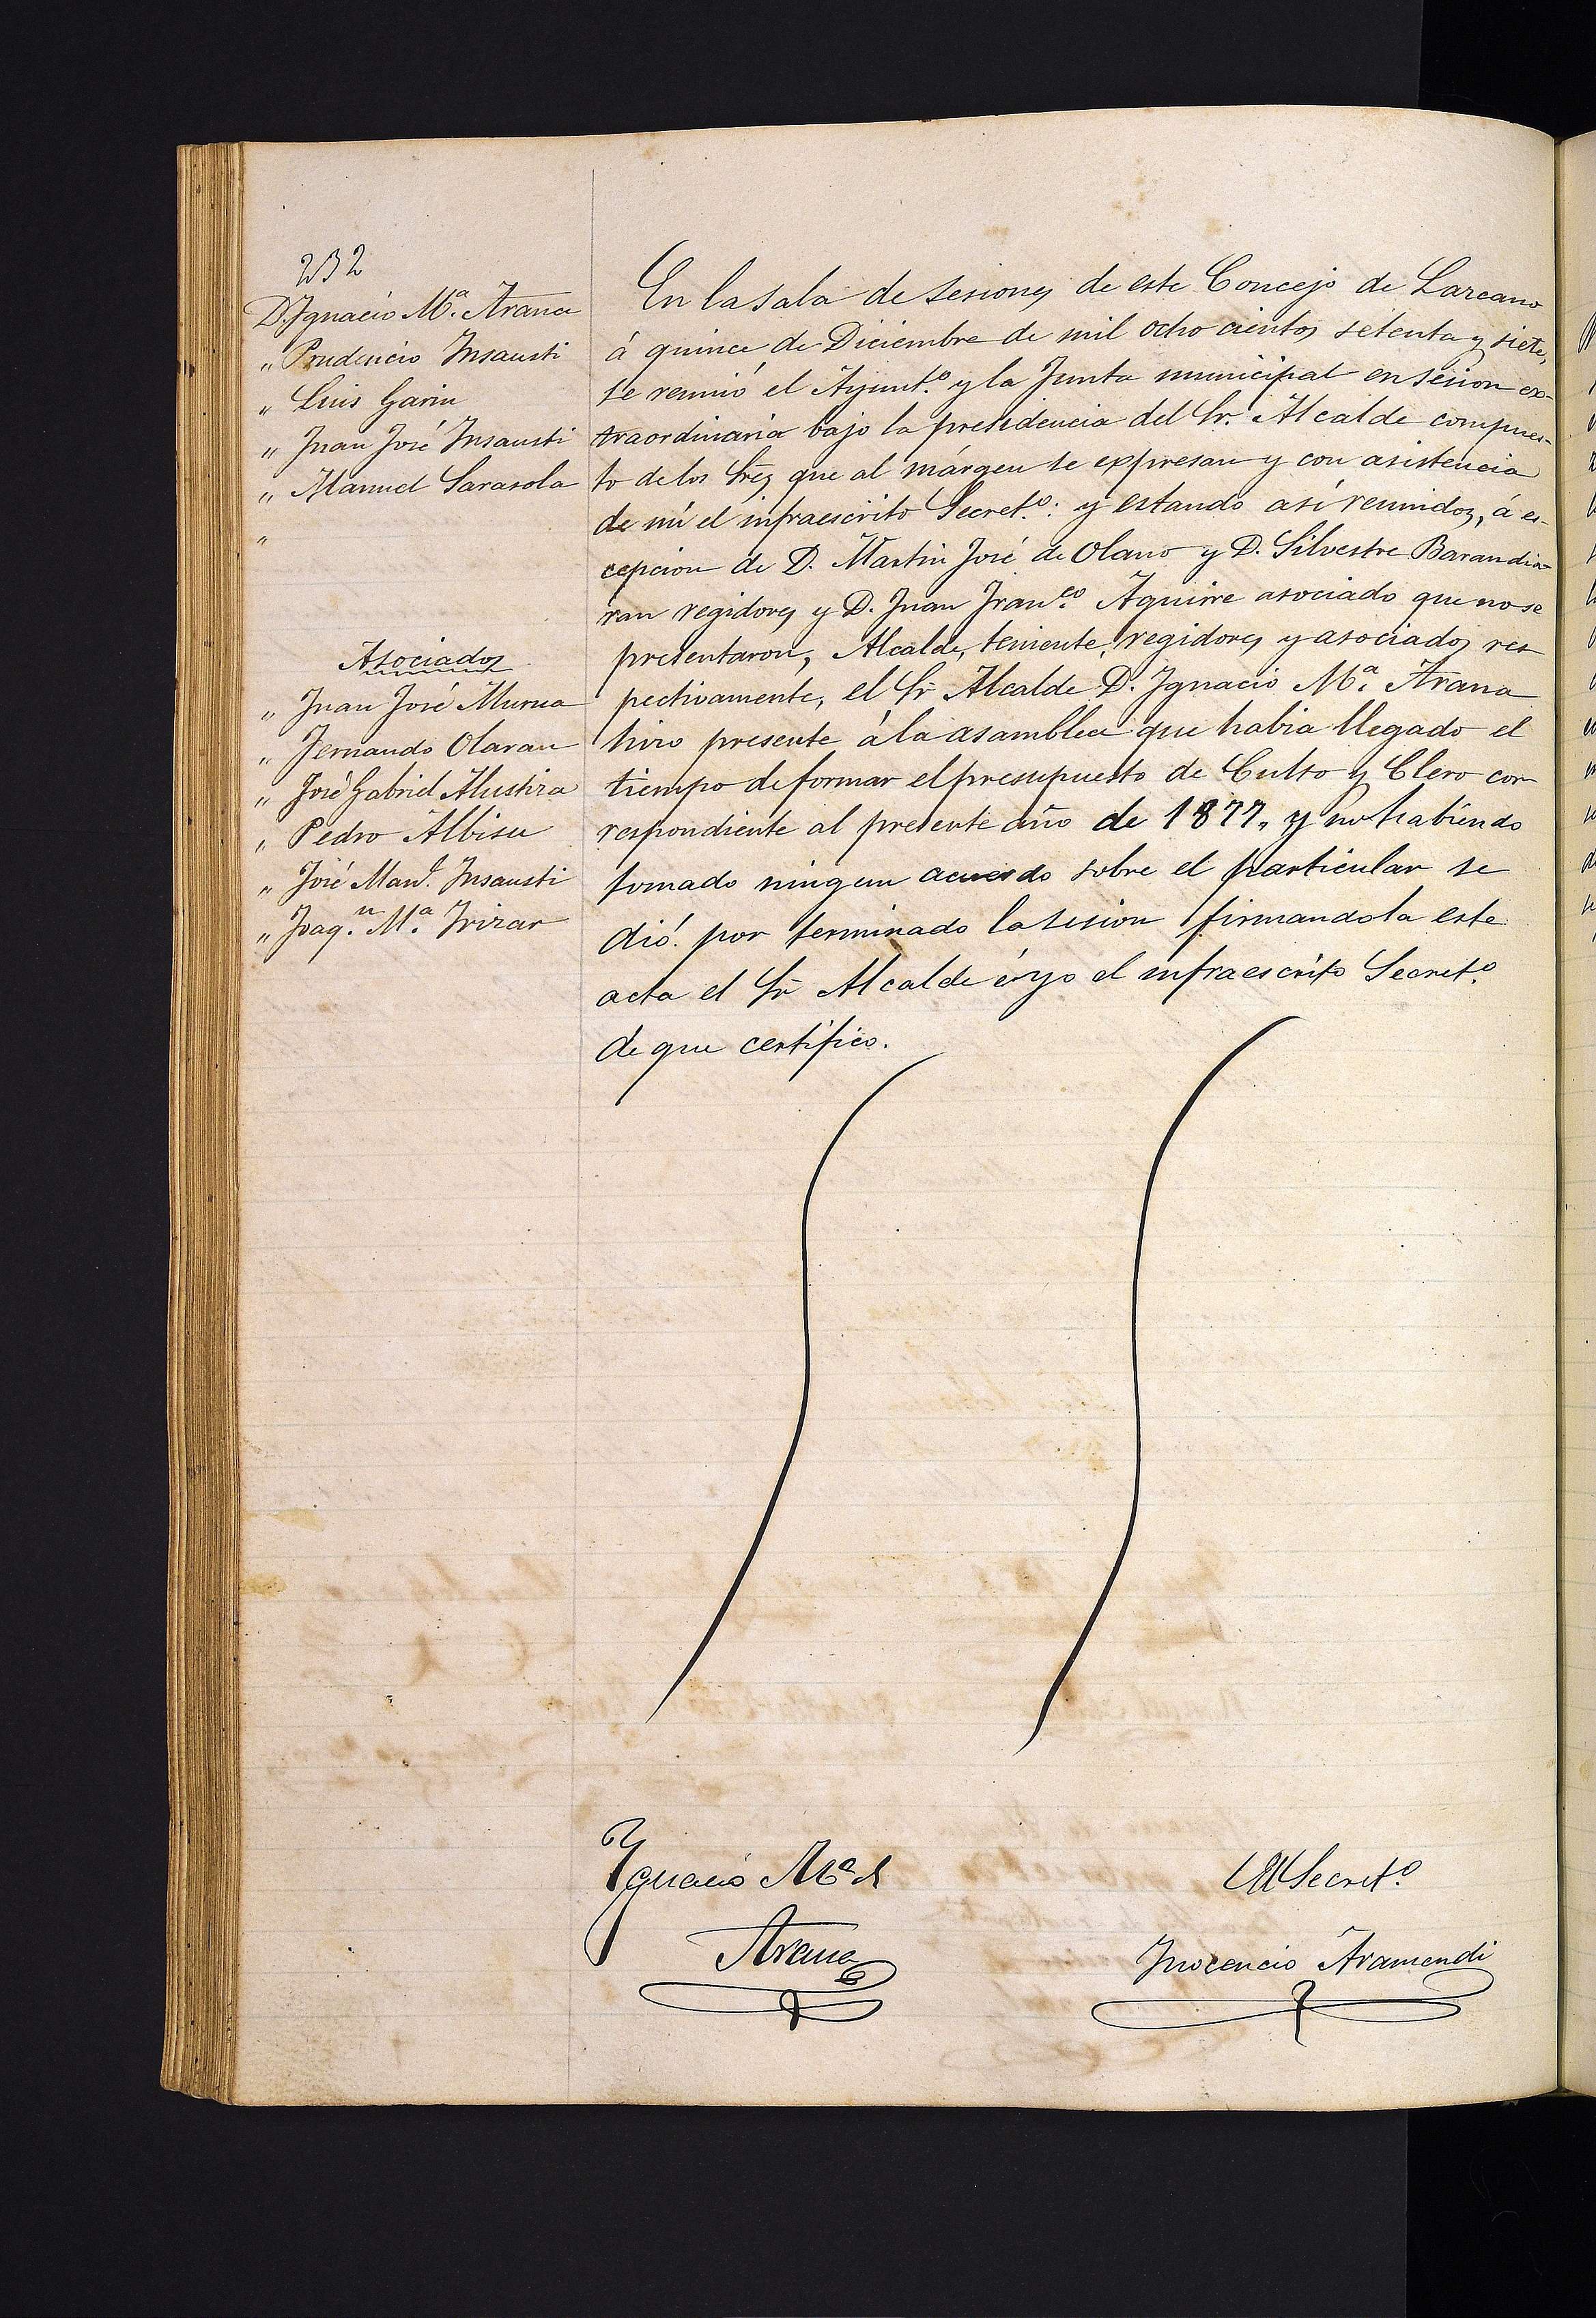 232
D. Ignacio M.ª Arana
„ Prudencio Insausti
„ Luis Garin
„ Juan José Insausti
„ Manuel Sarasola
„
Asociados
„ Juan José Murua
„ Fernando Olaran
„ José Gabriel Alustiza
„ Pedro Albisu
„ José Man.l Insausti
„ Joaq.n M.ª Irizar
En la sala de sesiones de este Concejo de Lazcano
á quince de Diciembre de mil ocho cientos setenta y siete,
se reunió el Ayunt.º y la Junta municipal en sesion ex-
traordinaria bajo la presidencia del Sr. Alcalde compues-
to de los Sres que al márgen se expresan y con asistencia
de mi el infraescrito Secret.º: y estando así reunidos, á es-
cepcion de D. Martin José de Olano y D. Silvestre Barandia-
ran regidores y D. Juan Fran.co Aguirre asociado que no se
presentaron, Alcalde, teniente, regidores y asociados res-
pectivamente, el Sr Alcalde D. Ignacio M.ª Arana
hizo presente á la asamblea que habia llegado el
tiempo de formar el presupuesto de Culto y Clero cor-
respondiente al presente año de 1877, y no habiendo
tomado ningun acuerdo sobre el particular se
dió por terminado la sesion firmandola este
acta el Sr Alcalde é yo el infraescrito Secret.º
de que certifico.
Ignacio M.ª de
Arana
El Secret.º
Inocencio Aramendi